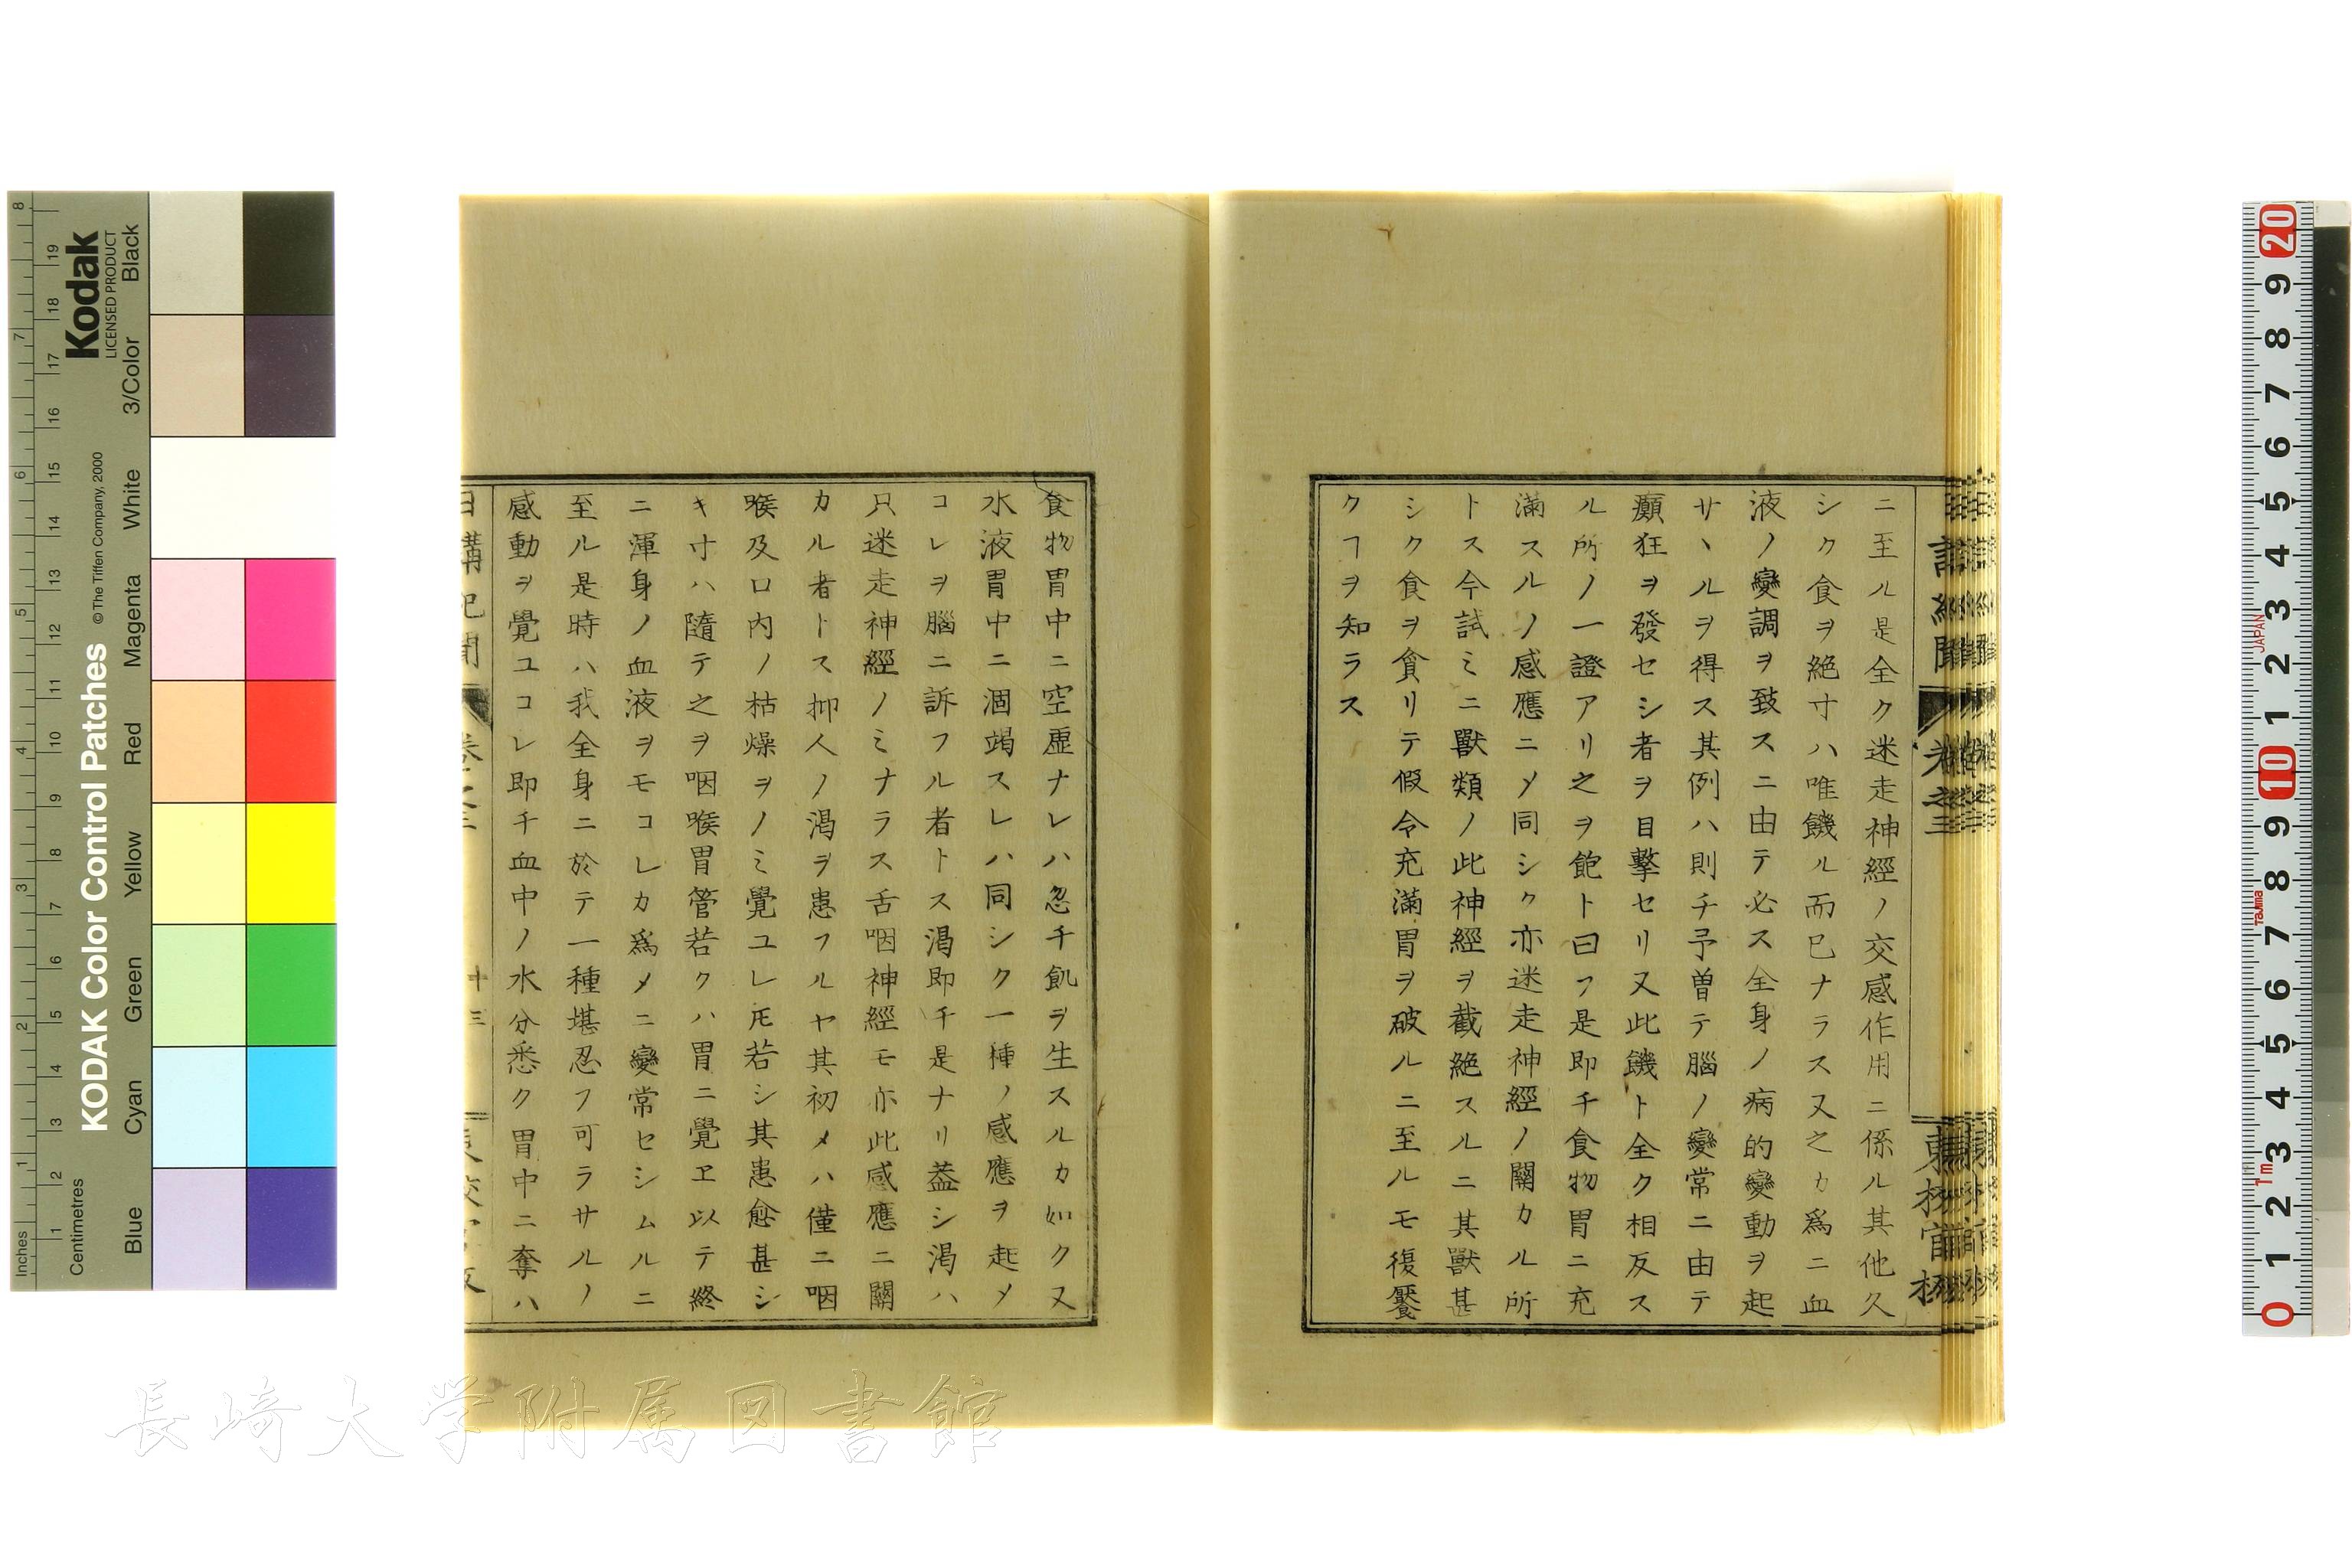 ニ至ル是全ク迷走神經ノ交感作用ニ係ル其他久
シク食ヲ絶寸ハ唯饑ル而已ナラス又之カ爲ニ血
液ノ變調ヲ致スニ由テ必ス全身ノ病的變動ヲ起
サヽルヲ得ス其例ハ則チ予曽テ腦ノ變常ニ由テ
癲狂ヲ發セシ者ヲ目擊セリ又此饑ト全ク相反ス
ル所ノ一證アリ之ヲ飽ト曰フ是即チ食物胃ニ充
滿スルノ感應ニメ同シク亦迷走神經ノ關カル所
トス今試ミニ獸類ノ此神經ヲ截絶スルニ其獸甚
シク食ヲ貪リテ假令充滿胃ヲ破ルニ至ルモ復饜
クヿヲ知ラス
食物胃中ニ空虛ナレハ忽チ飢ヲ生スルカ如ク又
水液胃中ニ涸竭スレハ同シク一種ノ感應ヲ起メ
コレヲ腦ニ訴フル者トス渇即チ是ナリ蓋シ渇ハ
只迷走神經ノミナラス舌咽神經モ亦此感應ニ關
カル者トス抑人ノ渇ヲ患フルヤ其初メハ僅ニ咽
喉及口内ノ枯燥ヲノミ覺ユレ𪜈若シ其患愈甚シ
キ寸ハ隨テ之ヲ咽喉胃管若クハ胃ニ覺ヱ以テ終
ニ渾身ノ血液ヲモコレカ爲メニ變常セシムルニ
至ル是時ハ我全身ニ於テ一種堪忍フ可ラサルノ
感動ヲ覺ユコレ即チ血中ノ水分悉ク胃中ニ奪ハ
十三
長崎大学附属図書館
Kodak
LICENSED PRODUCT
KODAK Color Control Patches
© The Tiffen Company, 2000
Inches
Centimetres
Blue Cyan Green Yellow Red Magenta White 3/Color Black
JAPAN
Tajima